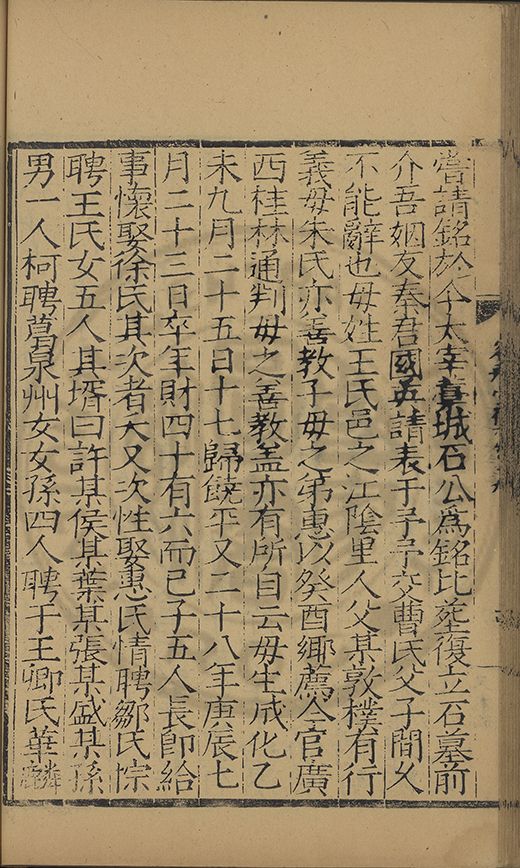 嘗請銘於今太宰藁城石公爲銘比塟復立石墓前
介吾姻友秦君國英請表于予予交曹氏父子間久
不能辭也毋姓王氏邑之江陰里人父某敦樸有行
義毋朱氏亦善教子毋之弟惠以癸酉鄉薦今官廣
西桂林通判毋之善教盖亦有所自云毋生成化乙
未九月二十五日十七歸饒平又二十八年庚辰七
月二十三日卒年財四十有六而已子五人長卽給
事懷娶徐氏其次者大又次性娶惠氏情聘鄒氏悰
聘王氏女五人其壻曰許某侯某葉某張某盛某孫
男一人柯聘葛泉州女女孫四人聘于王卿氏華麟